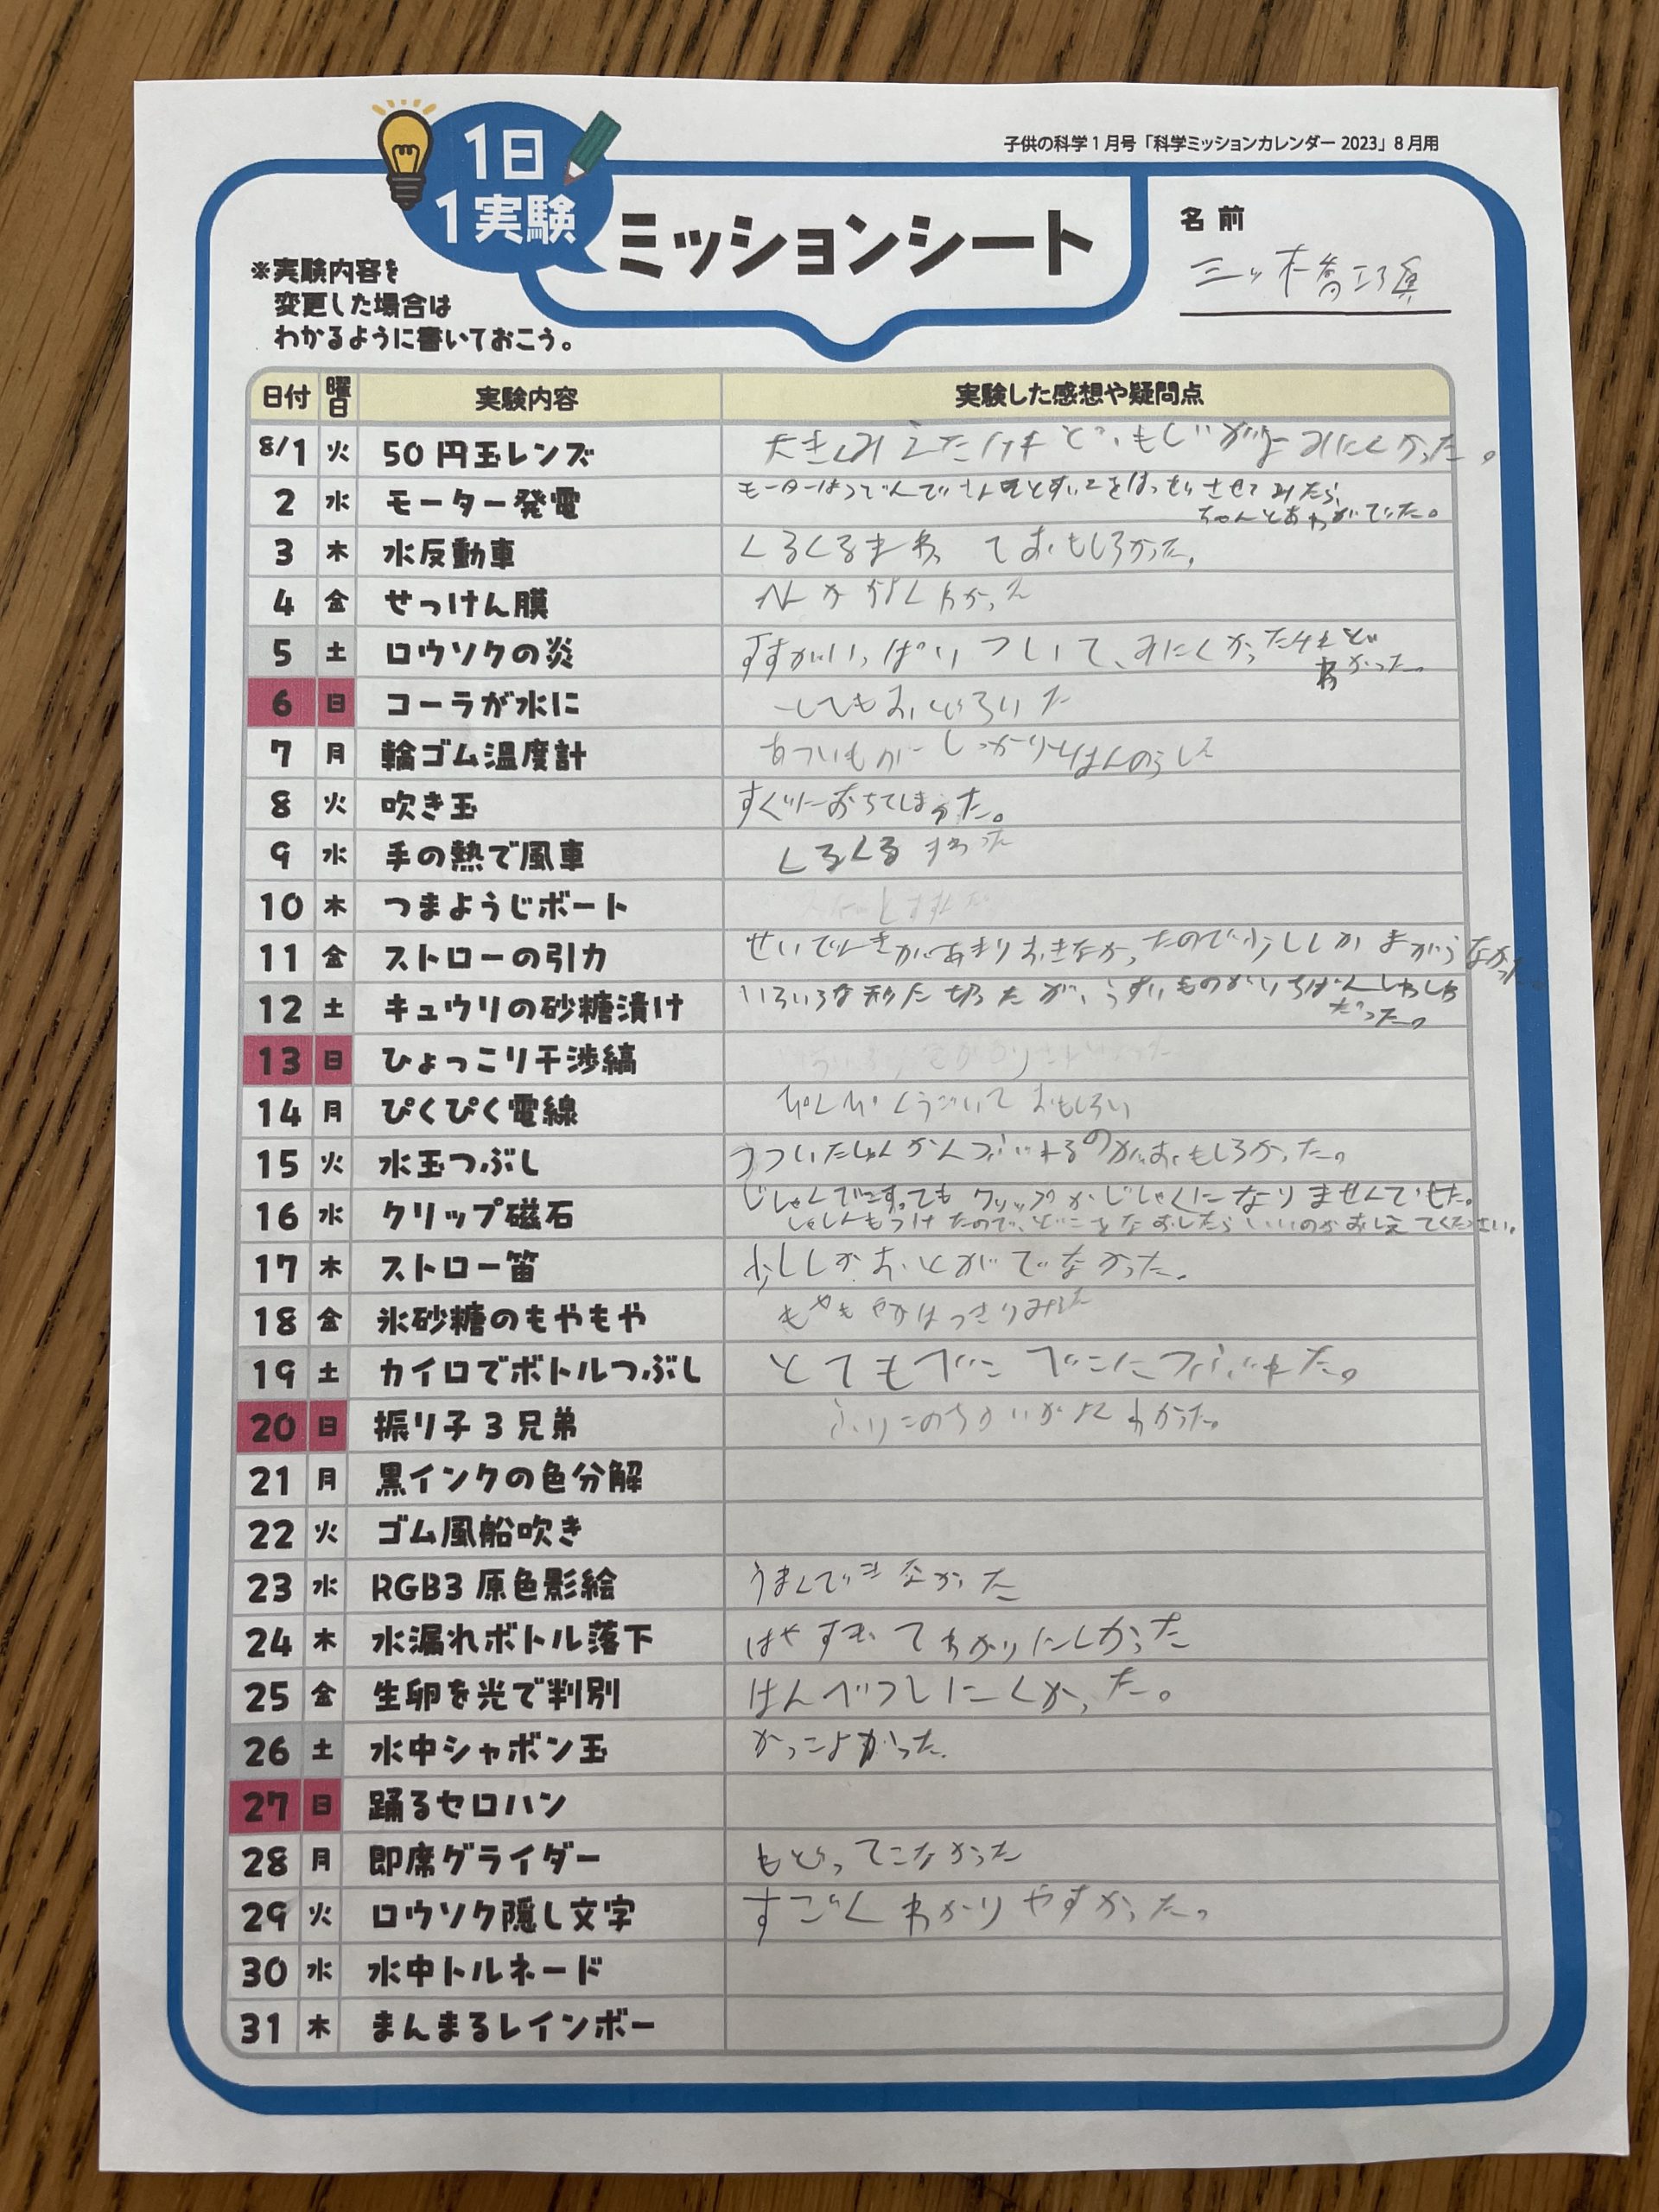 子供の科学1月号「科学ミッションカレンダー 2023」8月用
1日
1実験
ミッションシート
名前
三ッ橋
※実験内容を
変更した場合は
わかるように書いておこう。
日付 曜日 実験内容 実験した感想や疑問点
8/1 火 50円玉レンズ 大きくみえたけど、もじが みにくかった。
2 水 モーター発電 させてみたら、
ちゃんとあわがでた。
3 木 水反動車 くるくるまわっておもしろかった。
4 金 せっけん膜
5 土 ロウソクの炎 すすがいっぱいついて、みにくかったけれど
わかった。
6 日 コーラが水に
7 月 輪ゴム温度計 しっかりはんのうして
8 火 吹き玉 すぐにおちてしまった。
9 水 手の熱で風車 くるくるまわった
10 木 つまようじボート
11 金 ストローの引力 せいでんきがあまりおきなかったので少ししかまがらなかった
12 土 キュウリの砂糖漬け いろいろな形に切ったが、うすいものがいちばんしわしわ
だった。
13 日 ひょっこり干渉縞
14 月 ぴくぴく電線 ぴくぴくうごいておもしろい
15 火 水玉つぶし つついたしゅんかんつぶれるのがおもしろかった。
16 水 クリップ磁石 じしゃくでこすってもクリップがじしゃくになりませんでした。
しゃしんもつけたので、どこをなおしたらいいのかおしえてください。
17 木 ストロー笛 少ししかおとがでなかった。
18 金 氷砂糖のもやもや もやもやがはっきりみえた
19 土 カイロでボトルつぶし とてもべこべこにつぶれた。
20 日 振り子3兄弟 ふりこのちがいがよくわかった。
21 月 黒インクの色分解
22 火 ゴム風船吹き
23 水 RGB3原色影絵 うまくできなかった
24 木 水漏れボトル落下 はやすぎてわかりにくかった
25 金 生卵を光で判別 はんべつしにくかった。
26 土 水中シャボン玉 かっこよかった。
27 日 踊るセロハン
28 月 即席グライダー もどってこなかった
29 火 ロウソク隠し文字 すごくわかりやすかった。
30 水 水中トルネード
31 木 まんまるレインボー